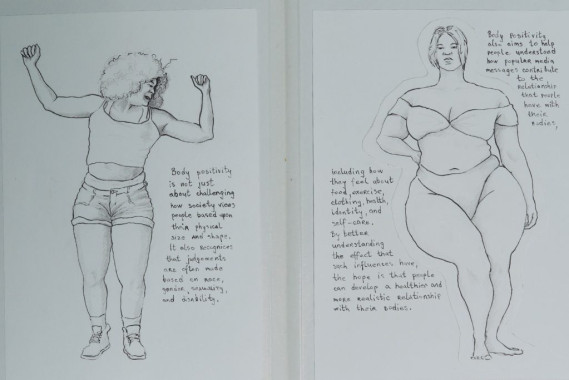 Body positivity
is not just
about challenging
how society views
people based upon
their physical
size and shape.
It also recognizes
that judgements
are often made
based on race,
gender, sexuality,
and disability.
Body Positivity
also aims to help
people understand
how popular media
messages contribute
to the
relationship
that people
have with
their
bodies,
including how
they feel about
food, exercise,
clothing, health,
identity, and
self-care.
By better
understanding
the effect that
such influences have,
the hope is that people
can develop a healthier and
more realistic relationship
with their bodies.